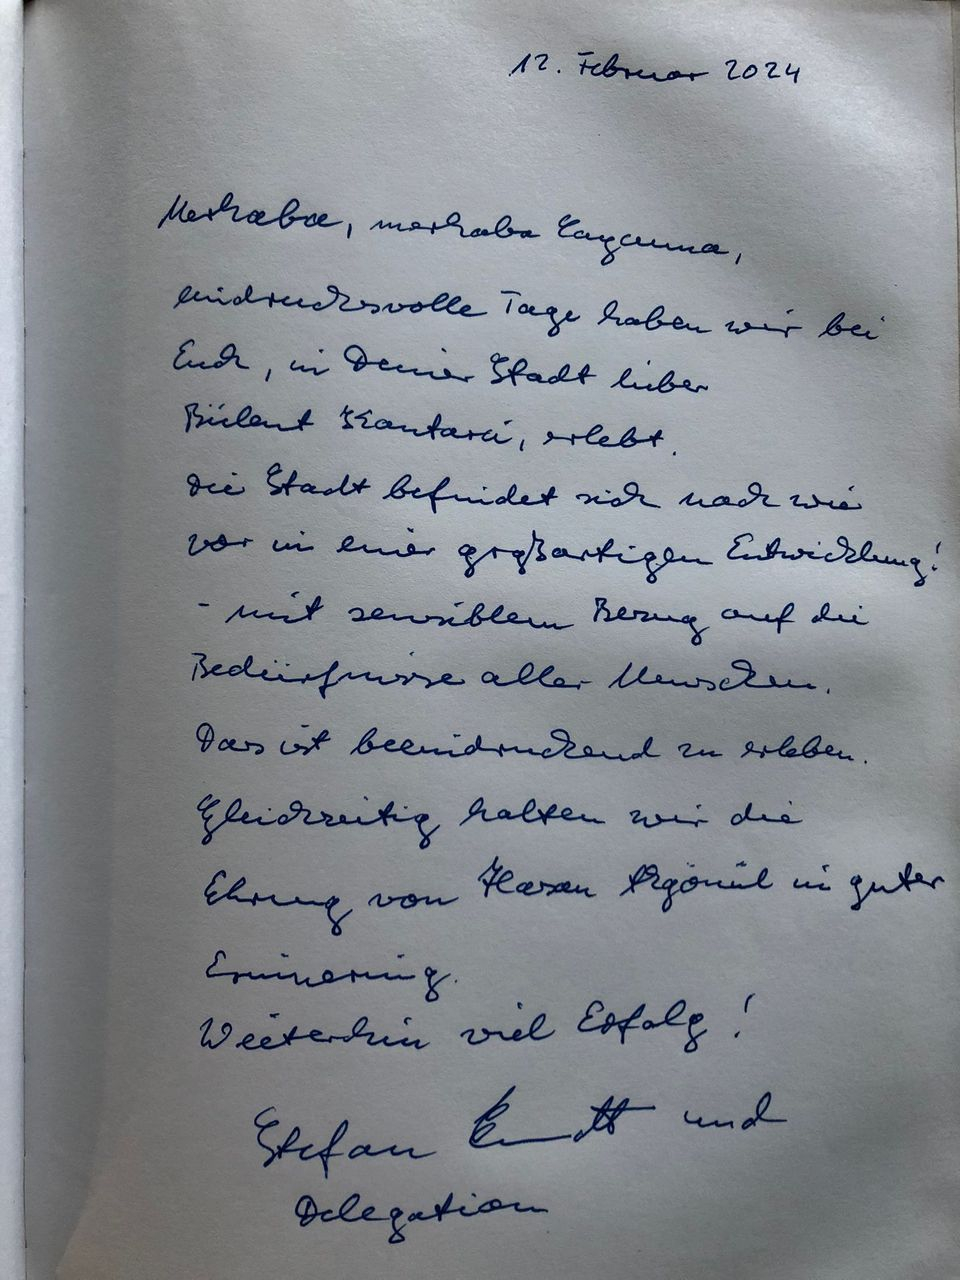 12. Februar 2024
Merhaba, merhaba Çaycuma,
eindrucksvolle Tage haben wir bei
Euch, in Deiner Stadt lieber
Bülent Kantarci, erlebt.
Die Stadt befindet sich nach wie
vor in einer großartigen Entwicklung!
- mit sensiblem Bezug auf die
Bedürfnisse aller Menschen.
Das ist beeindruckend zu erleben.
Gleichzeitig halten wir die
Ehrung von Hasan in guter
Erinnerung.
Weiterhin viel Erfolg!
Stefan und
Delegation